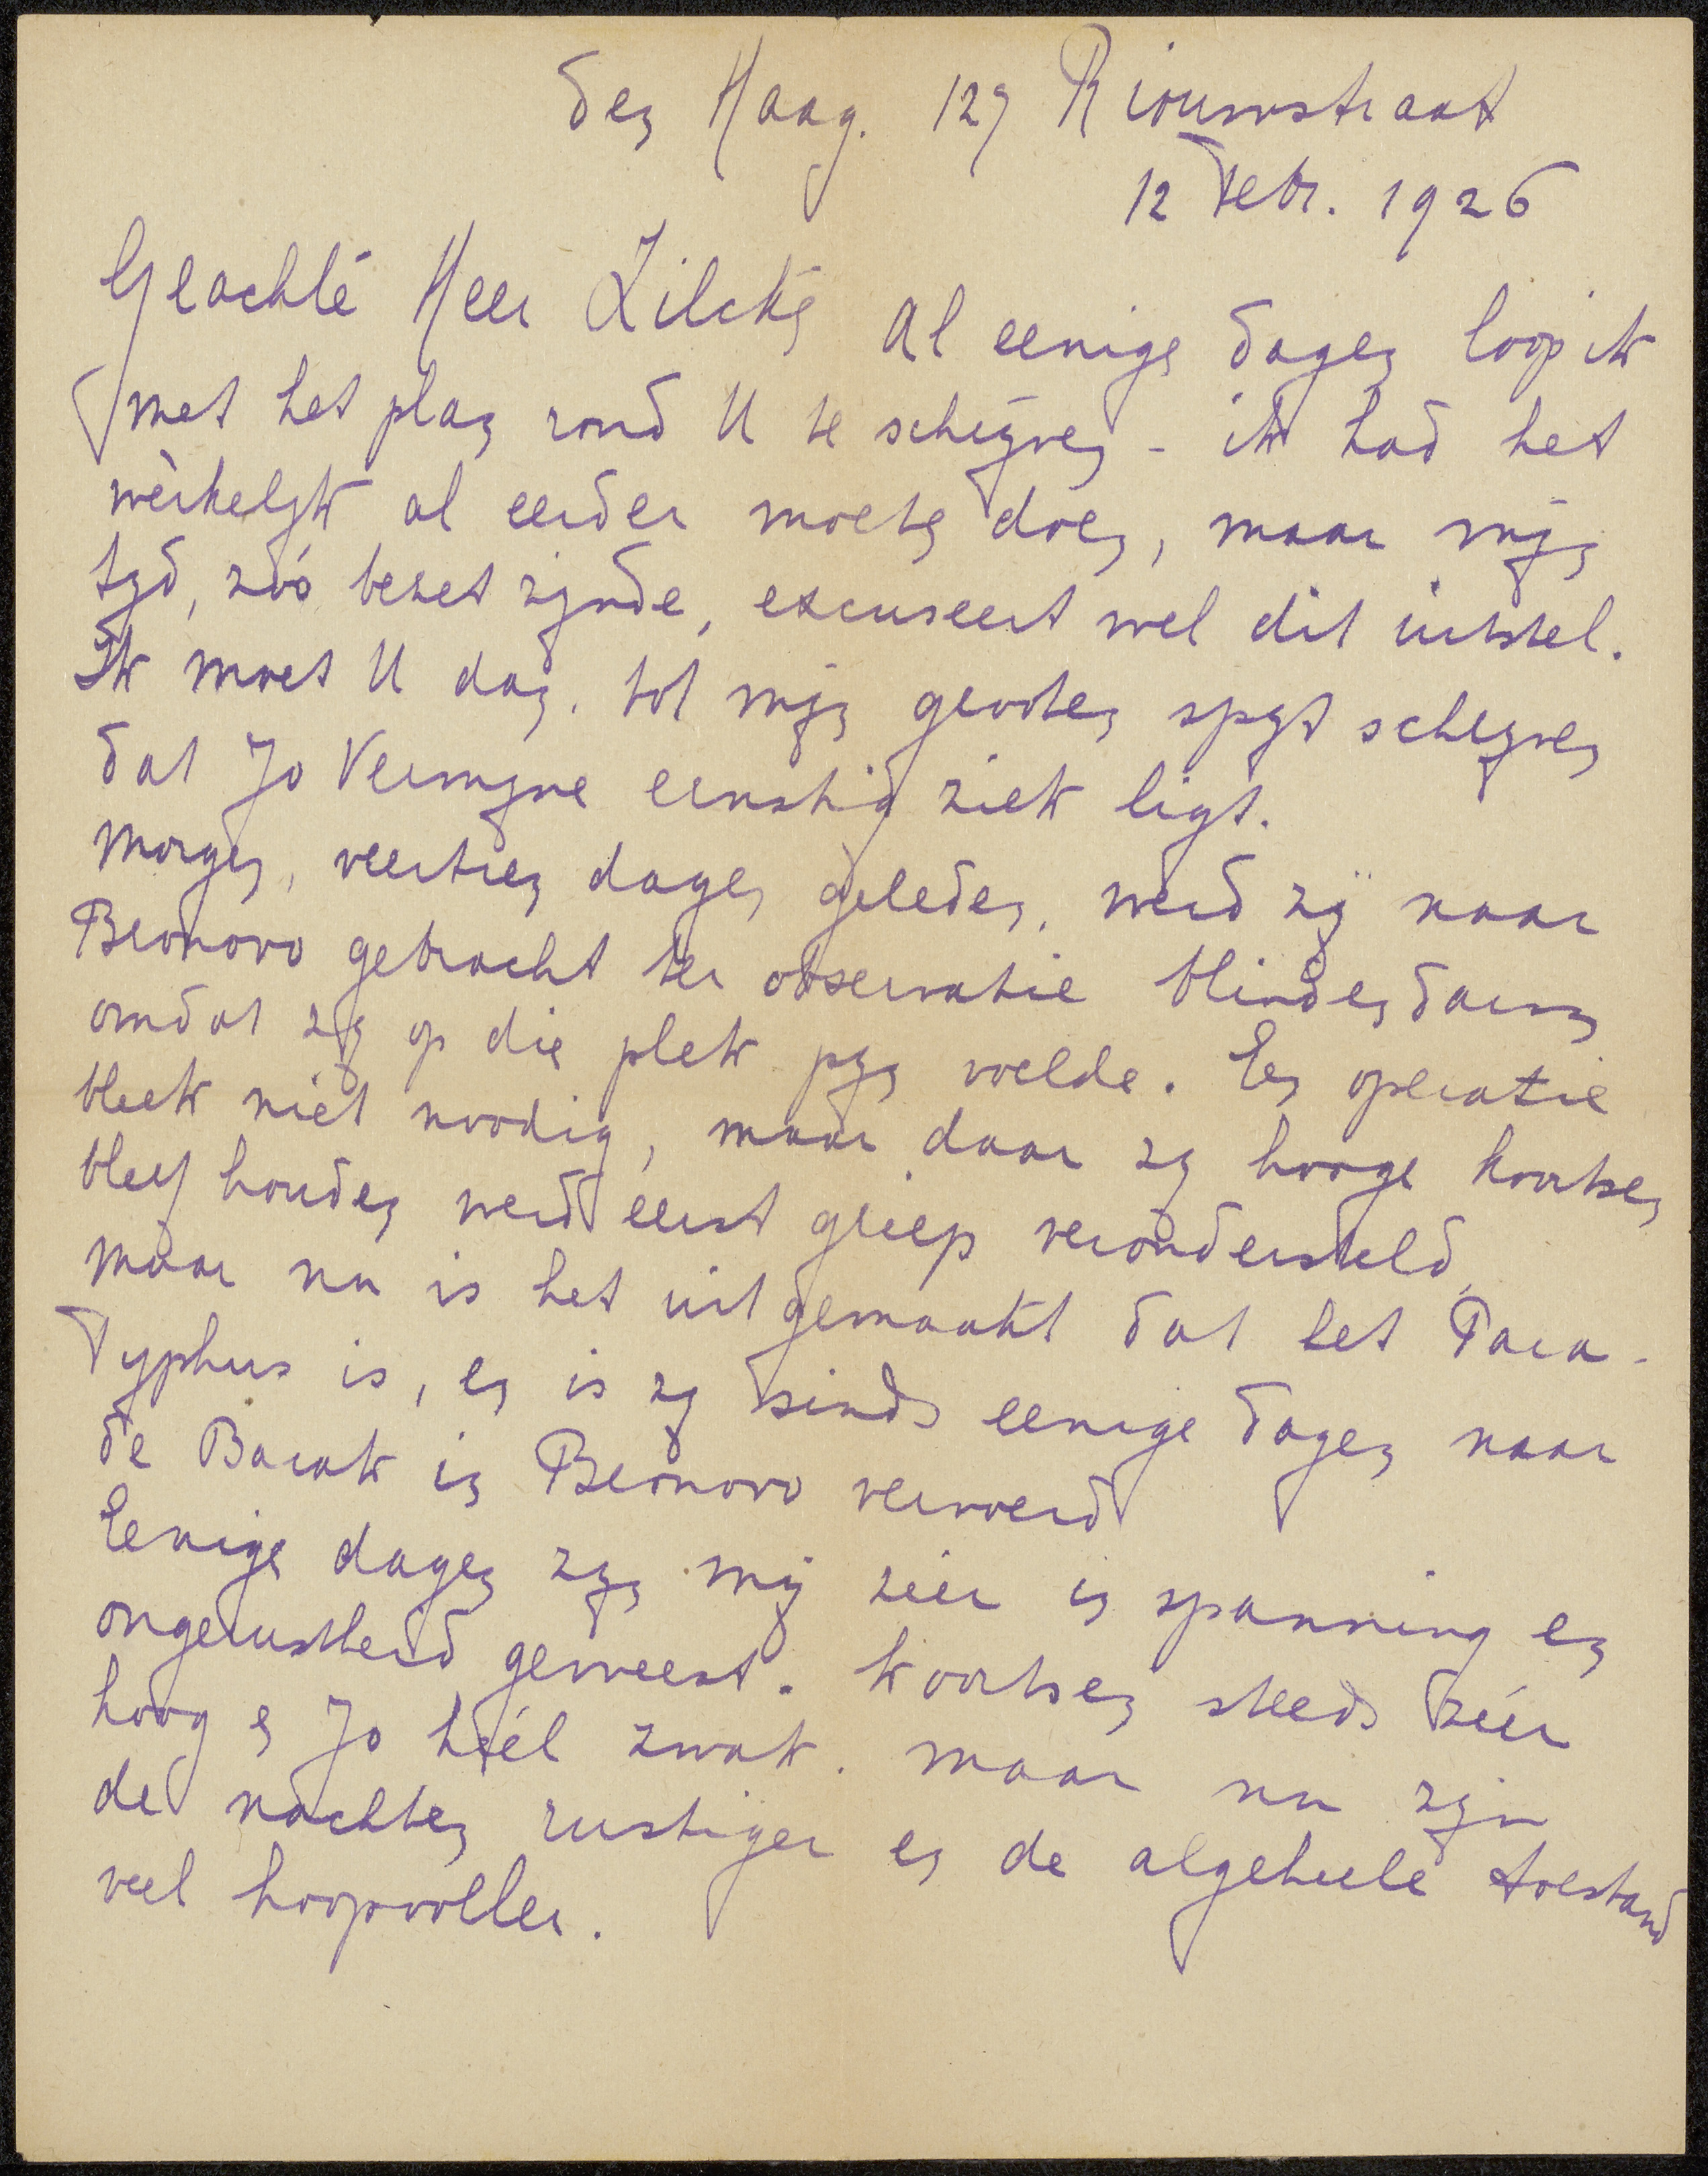 den Haag. 129 Riouwstraat
12 Febr. 1926
Geachte Heer Zilcken Al eenige dagen loop ik
met het plan rond U te schrijven - ik had het
werkelijk al eerder moeten doen, maar mijn
tijd, zóó bezet zijnde, excuseert wel dit uitstel.
Ik moet U dan, tot mijn grooten spijt schrijven
dat Jo Vermijne ernstig ziek ligt.
Morgen, veertien dagen geleden, werd zij naar
Bronovo gebracht ter observatie blinden darm
omdat zij op die plek pijn voelde. Een operatie
bleek niet noodig, maar daar zij hooge koortsen
bleef houden werd eerst griep verondersteld,
maar nu is het uitgemaakt dat het Para-
Typhus is, en is zij sinds eenige dagen naar
de Barak in Bronovo vervoerd
Eenige dagen zijn wij zeer in spanning en
ongerustheid geweest. Koortsen steeds zéér
hoog en Jo héél zwak. maar nu zijn
de nachten rustiger en de algeheele toestand
veel hoopvoller.